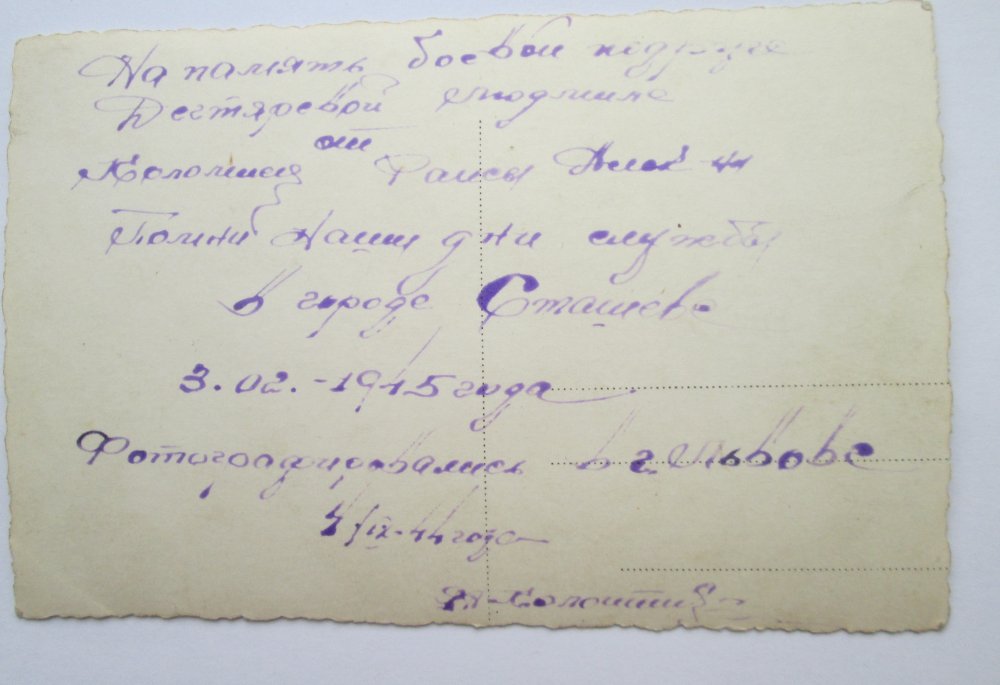 На память боевой подруге
Дегтяревой Людмиле
от
Коломиец Раисы
Помни наши дни службы
в городе Сташеве
3.02.-1945 года
Фотографировались в г. Львове
4/IX-44 года